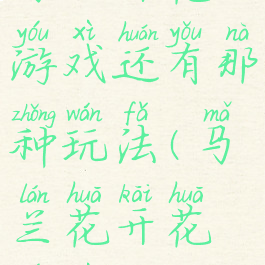 yóu xì huán yǒu nà
游戏还有那
zhǒng wán fǎ mǎ
种玩法(马
lán huā kāi huā
兰花开花